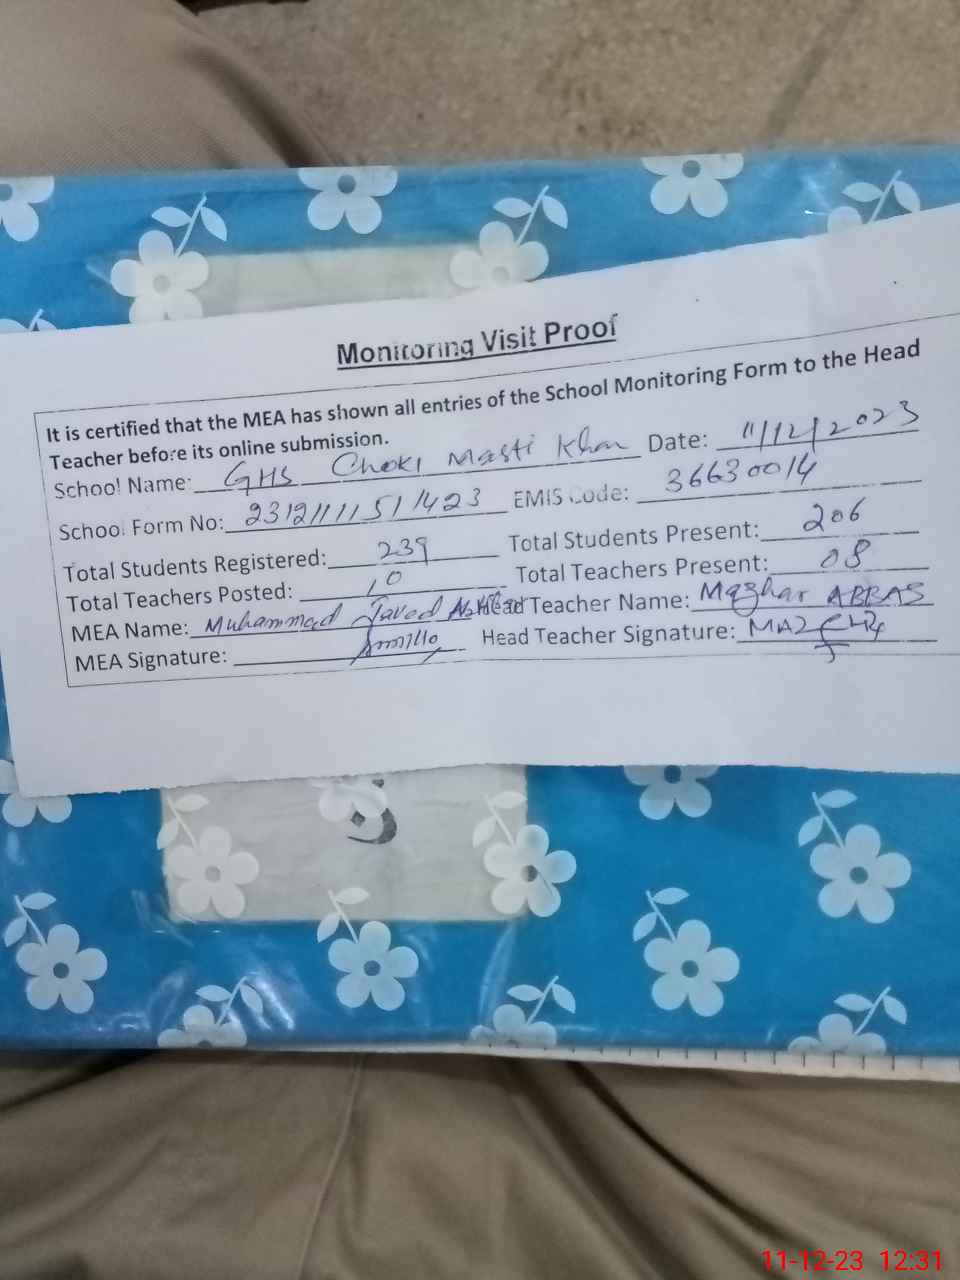 Monitoring Visit Proof
It is certified that the MEA has shown all entries of the School Monitoring Form to the Head
Teacher before its online submission.
School Name: GHS Choki Masti Khan Date: 11/12/2023
School Form No: 23121111511423 EMIS Code: 36630014
Total Students Registered: 239 Total Students Present: 206
Total Teachers Posted: 10 Total Teachers Present: 08
MEA Name: Muhammad Javed Head Teacher Name: Mazhar ABBAS
MEA Signature: Head Teacher Signature:
ن
11-12-23 12:31